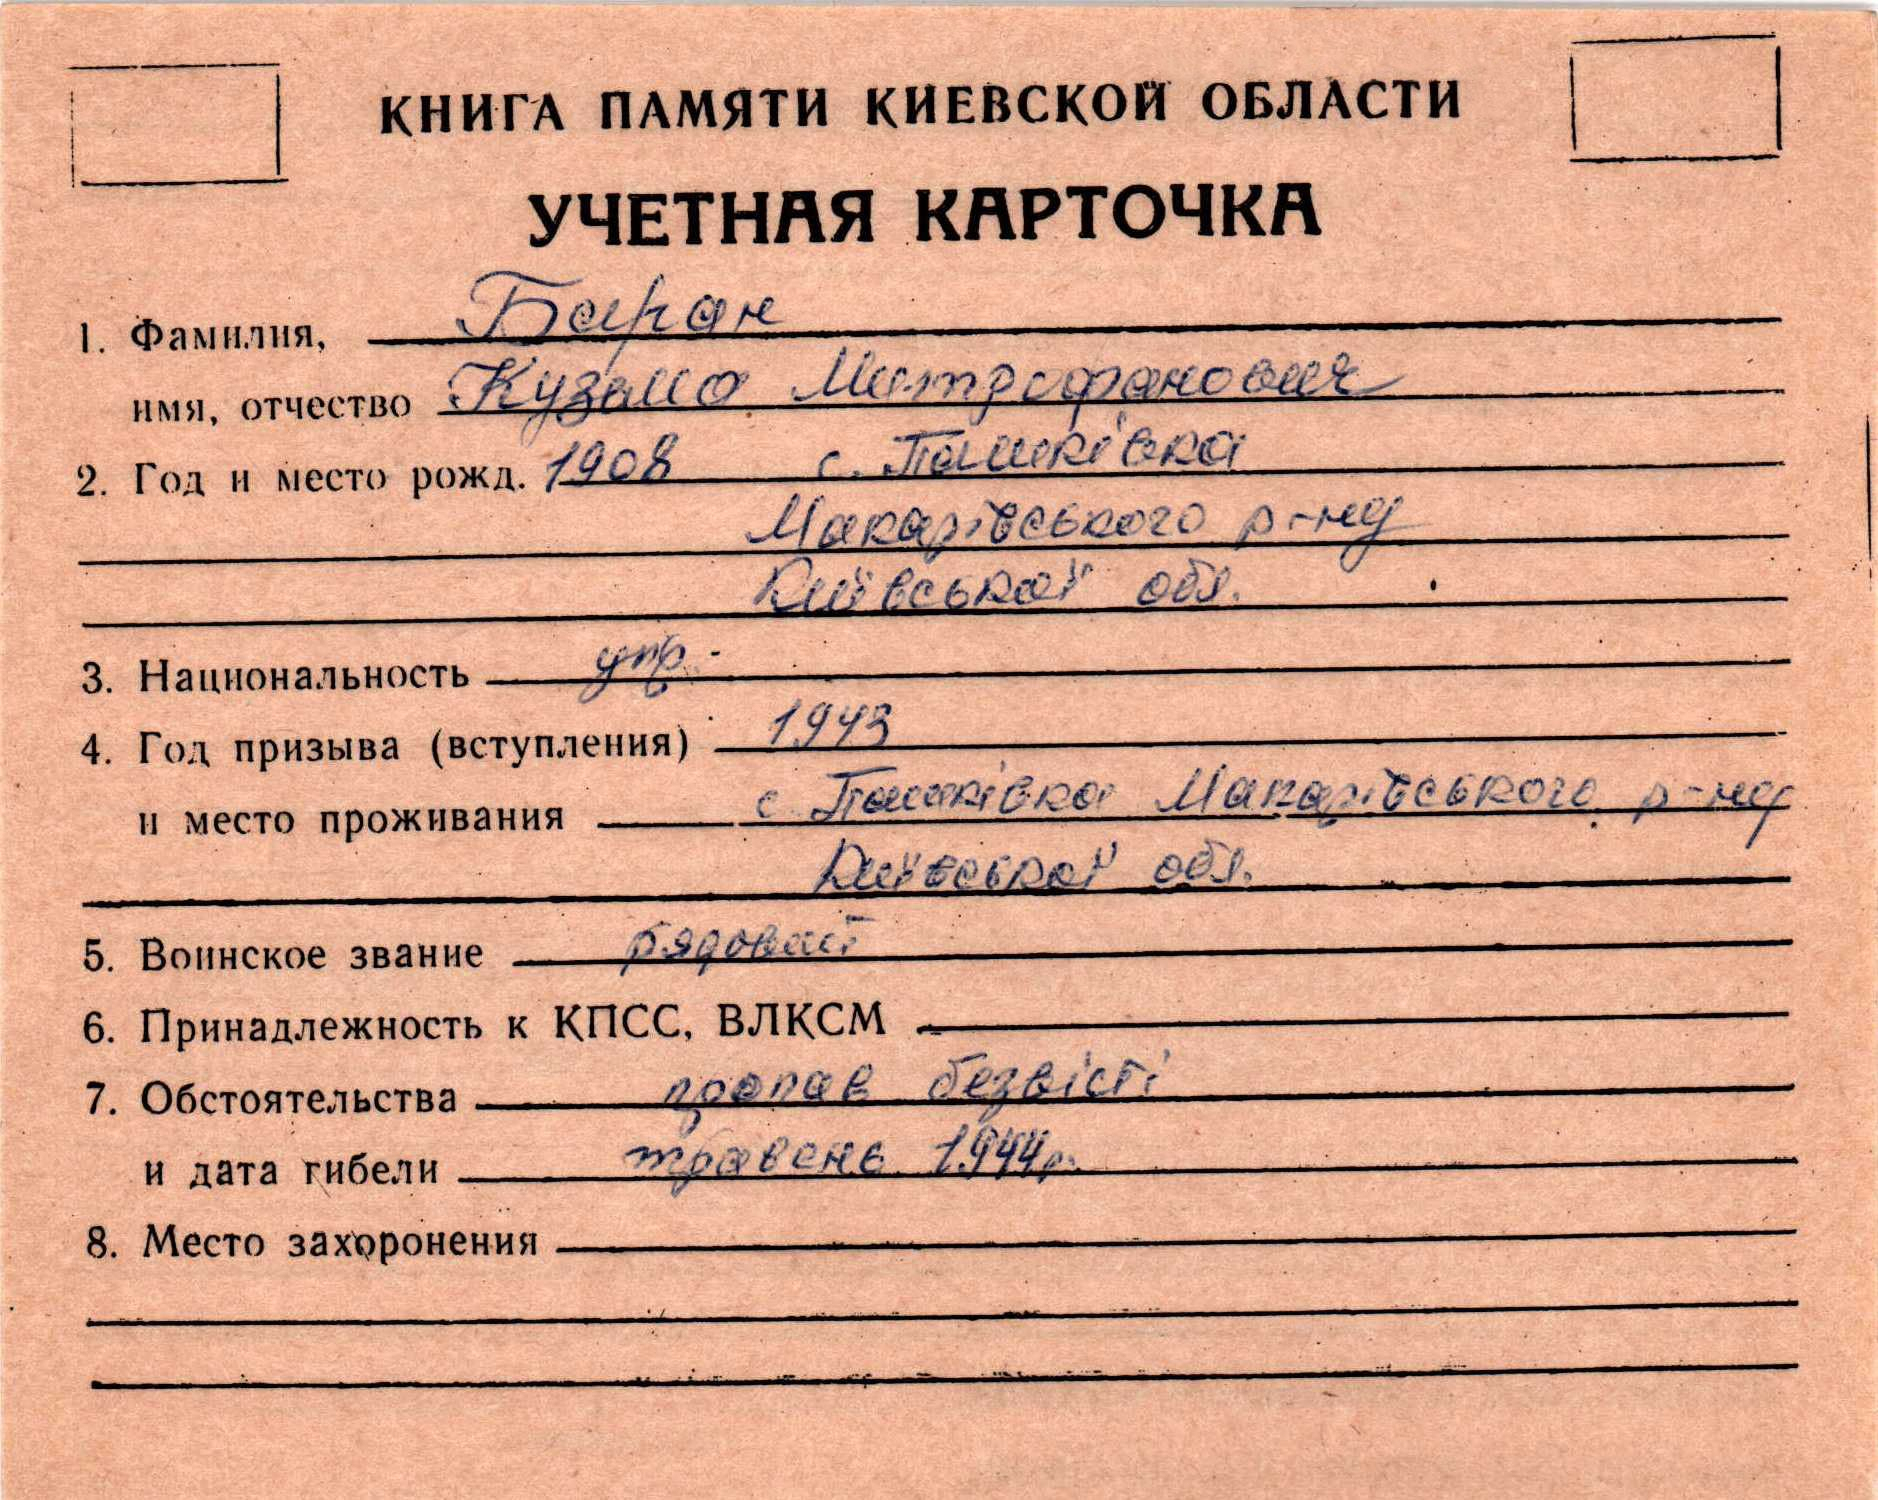 КНИГА ПАМЯТИ КИЕВСКОЙ ОБЛАСТИ
УЧЕТНАЯ КАРТОЧКА
1. Фамилия, Баран
имя, отчество Кузьмо Митрофанович
2. Год и место рожд. 1908 с. Пашківка
Макарівського р-ну
Київської обл.
3. Национальность укр.
4. Год призыва (вступления) 1943
и место проживания с. Пашківка Макарівського р-ну
Київської обл.
5. Воинское звание рядовий
6. Принадлежность к КПСС, ВЛКСМ
7. Обстоятельства пропав безвісті
и дата гибели травень 1944р.
8. Место захоронения